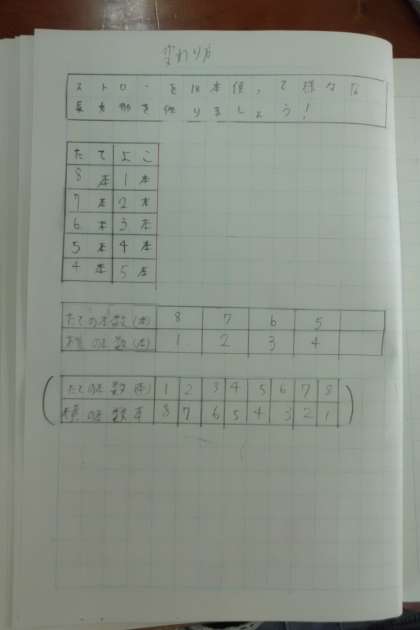 変わり方
ストローを18本使って様なな
長方形を作りましょう!
たて よこ
8本 1本
7本 2本
6本 3本
5本 4本
4本 5本
たての本数(本) 8 7 6 5
横の本数(本) 1 2 3 4
たての本数(本) 1 2 3 4 5 6 7 8
横の本数本 8 7 6 5 4 3 2 1